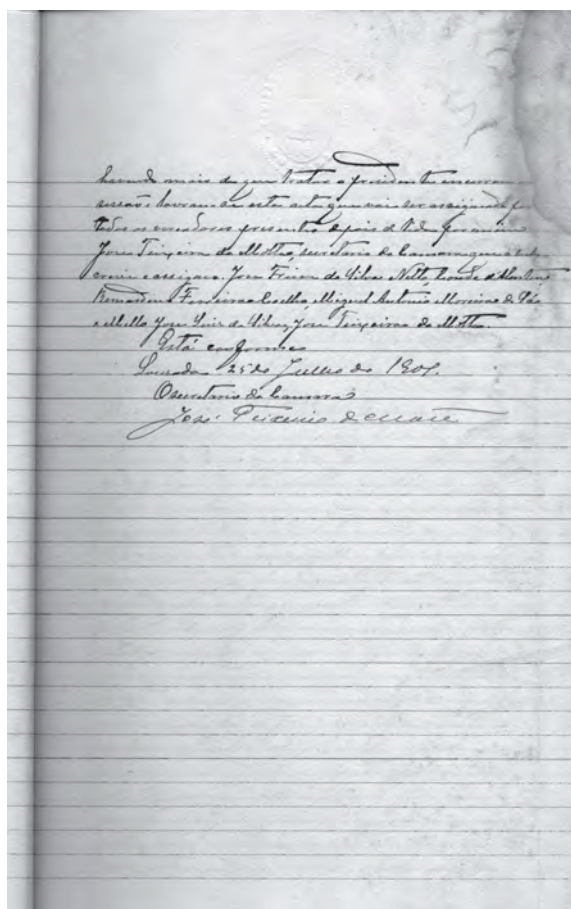 havendo mais de que tratar o presidente encerrou
sessão e lavrou-se esta acta que vai ser assignada
todos os vereadores presentes depois de lida por mim
José Teixeira da Motta, secretario da Camara que a
escrevi e assigno. José Freire da Silva Netto, Conde d'Alentem
Bernardino Ferreira Coelho, Miguel Antonio Moreira de Sá
e Mello, José Luiz da Silva, José Teixeira da Motta.
Está conforme
Louzada 25 de Julho de 1901.
O secretario da Camara
José Teixeira da Motta